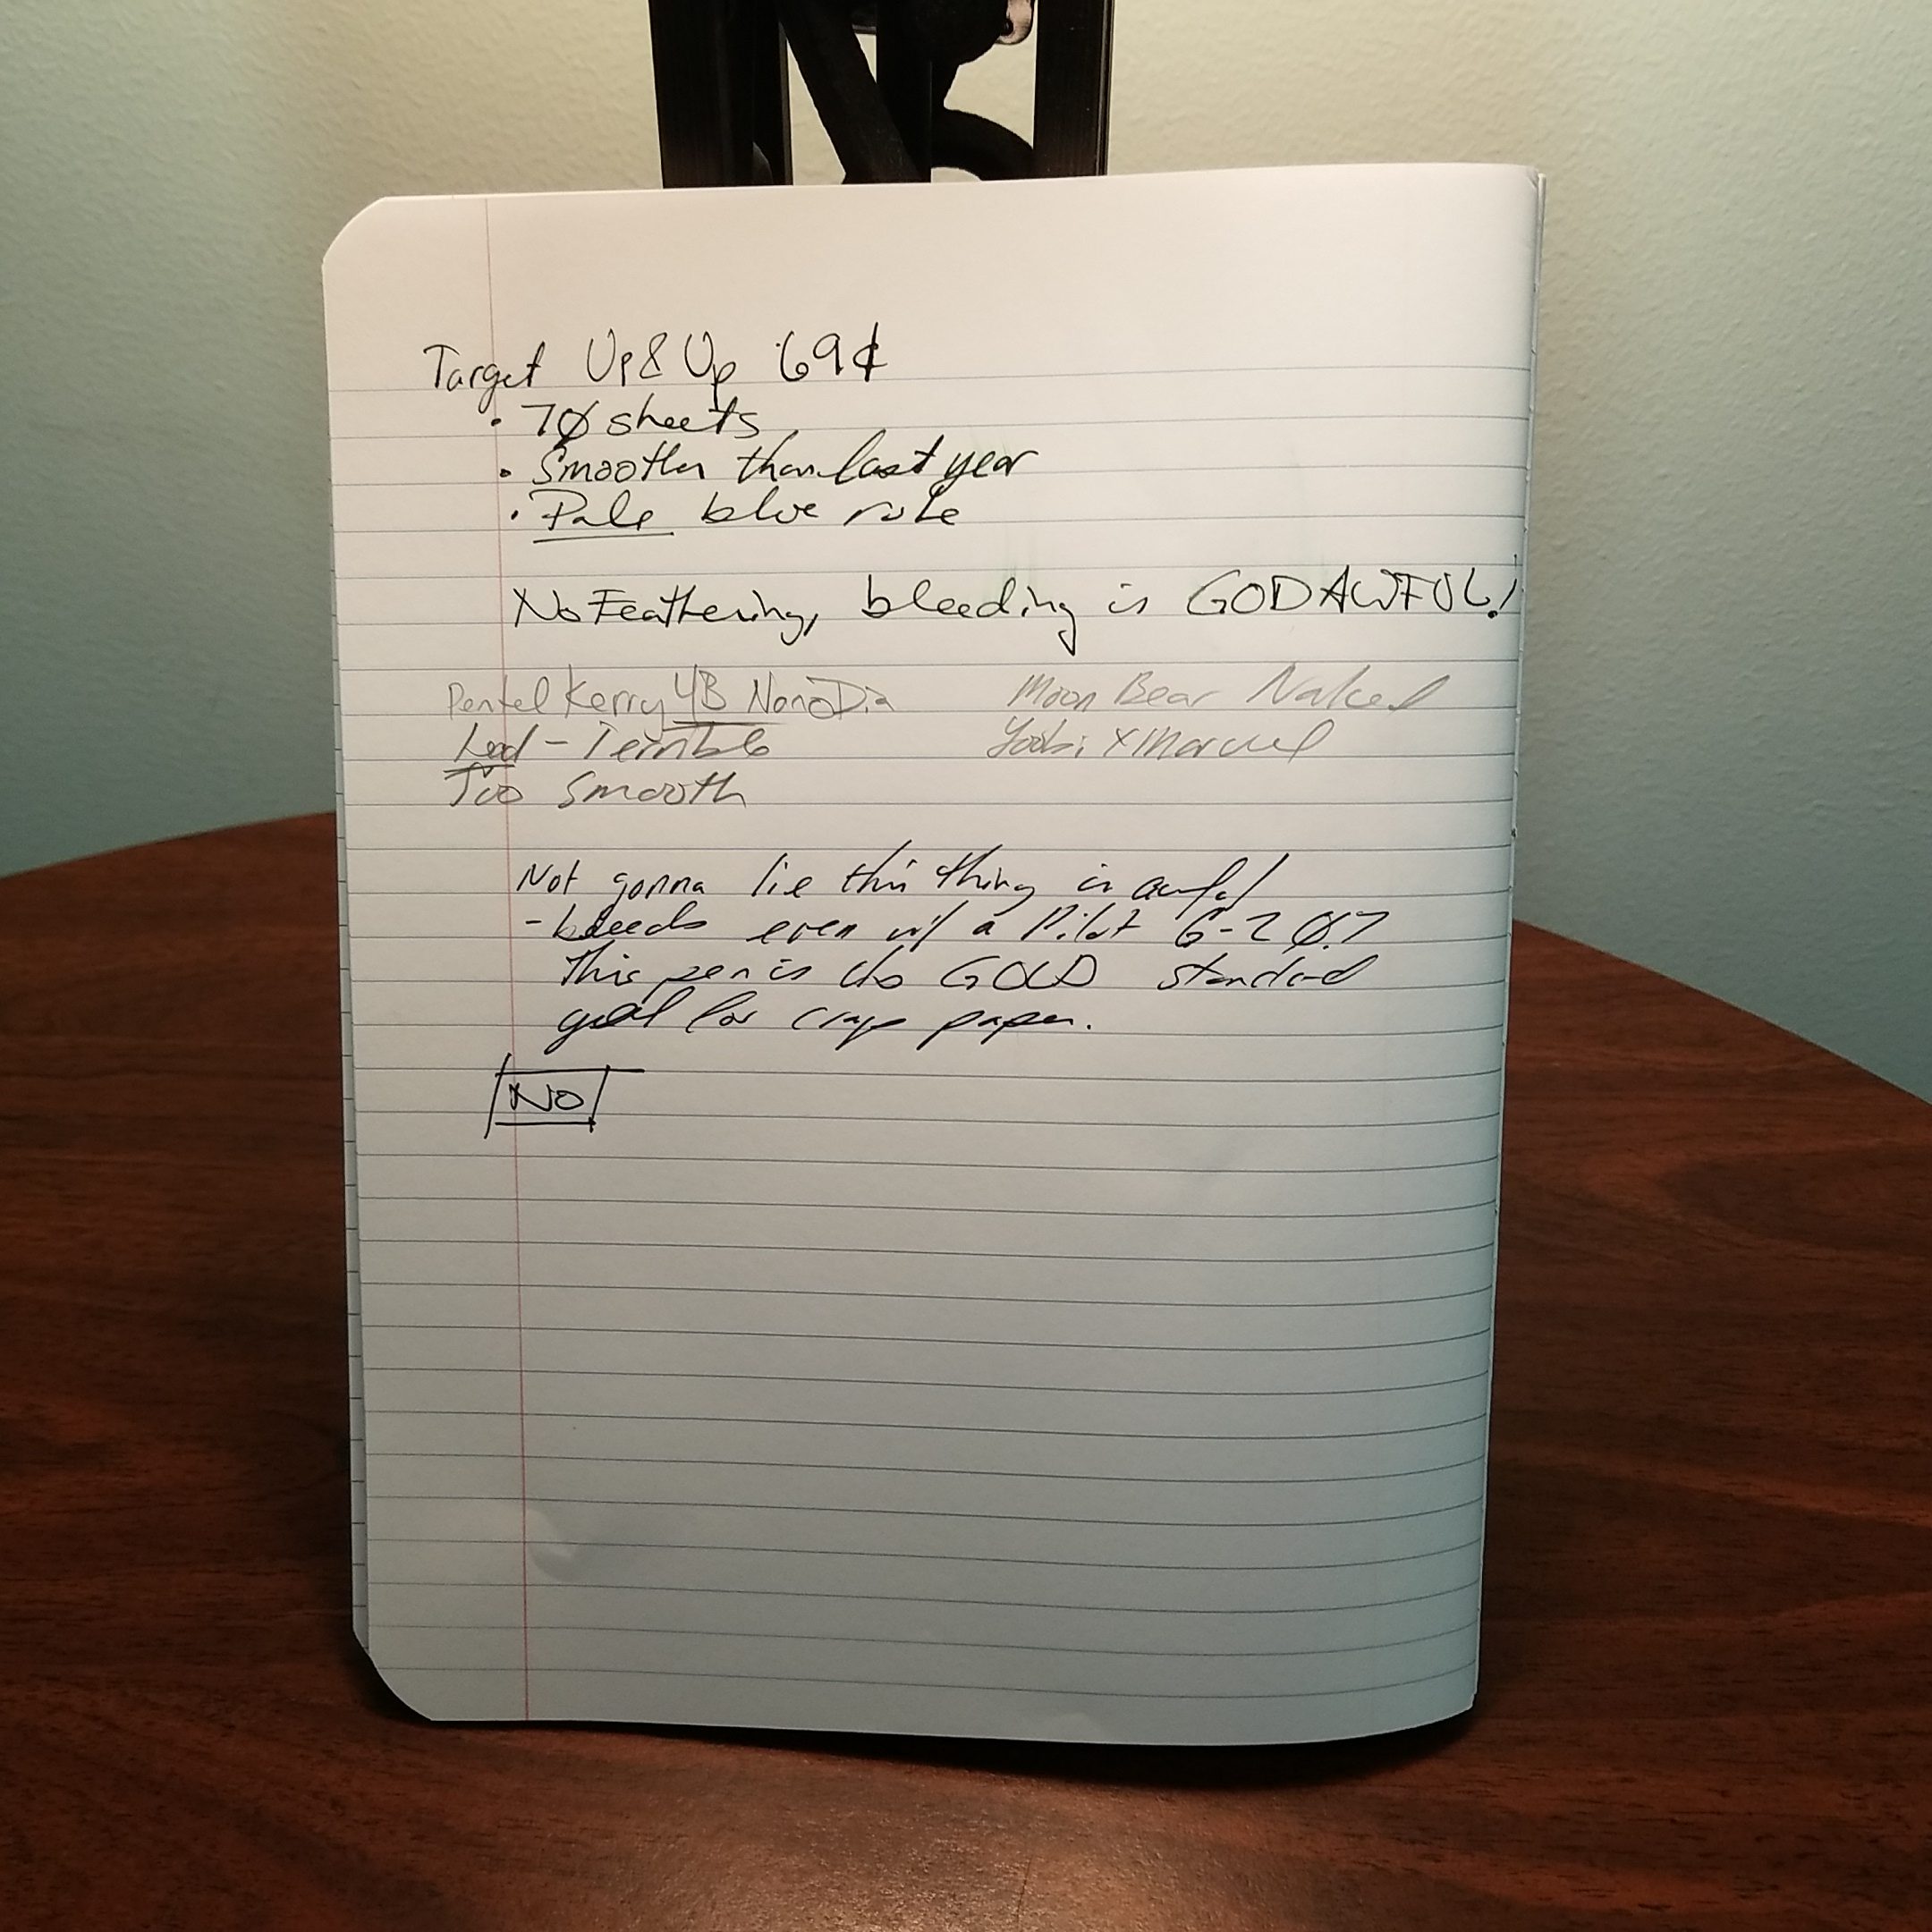 Target Up & Up 69¢
• 70 sheets
• Smoother than last year
• Pale blue rule
No Feathering, bleeding is GODAWFUL!
Pentel Kerry 4B NanoDia
Lead - Terrible
Too Smooth
Moon Bear Naked
Yoobi x Marvel
Not gonna lie this thing is awful
- bleeds even w/ a Pilot G-2 0.7
This pen is the GOLD standard
gel for crap paper.
NO